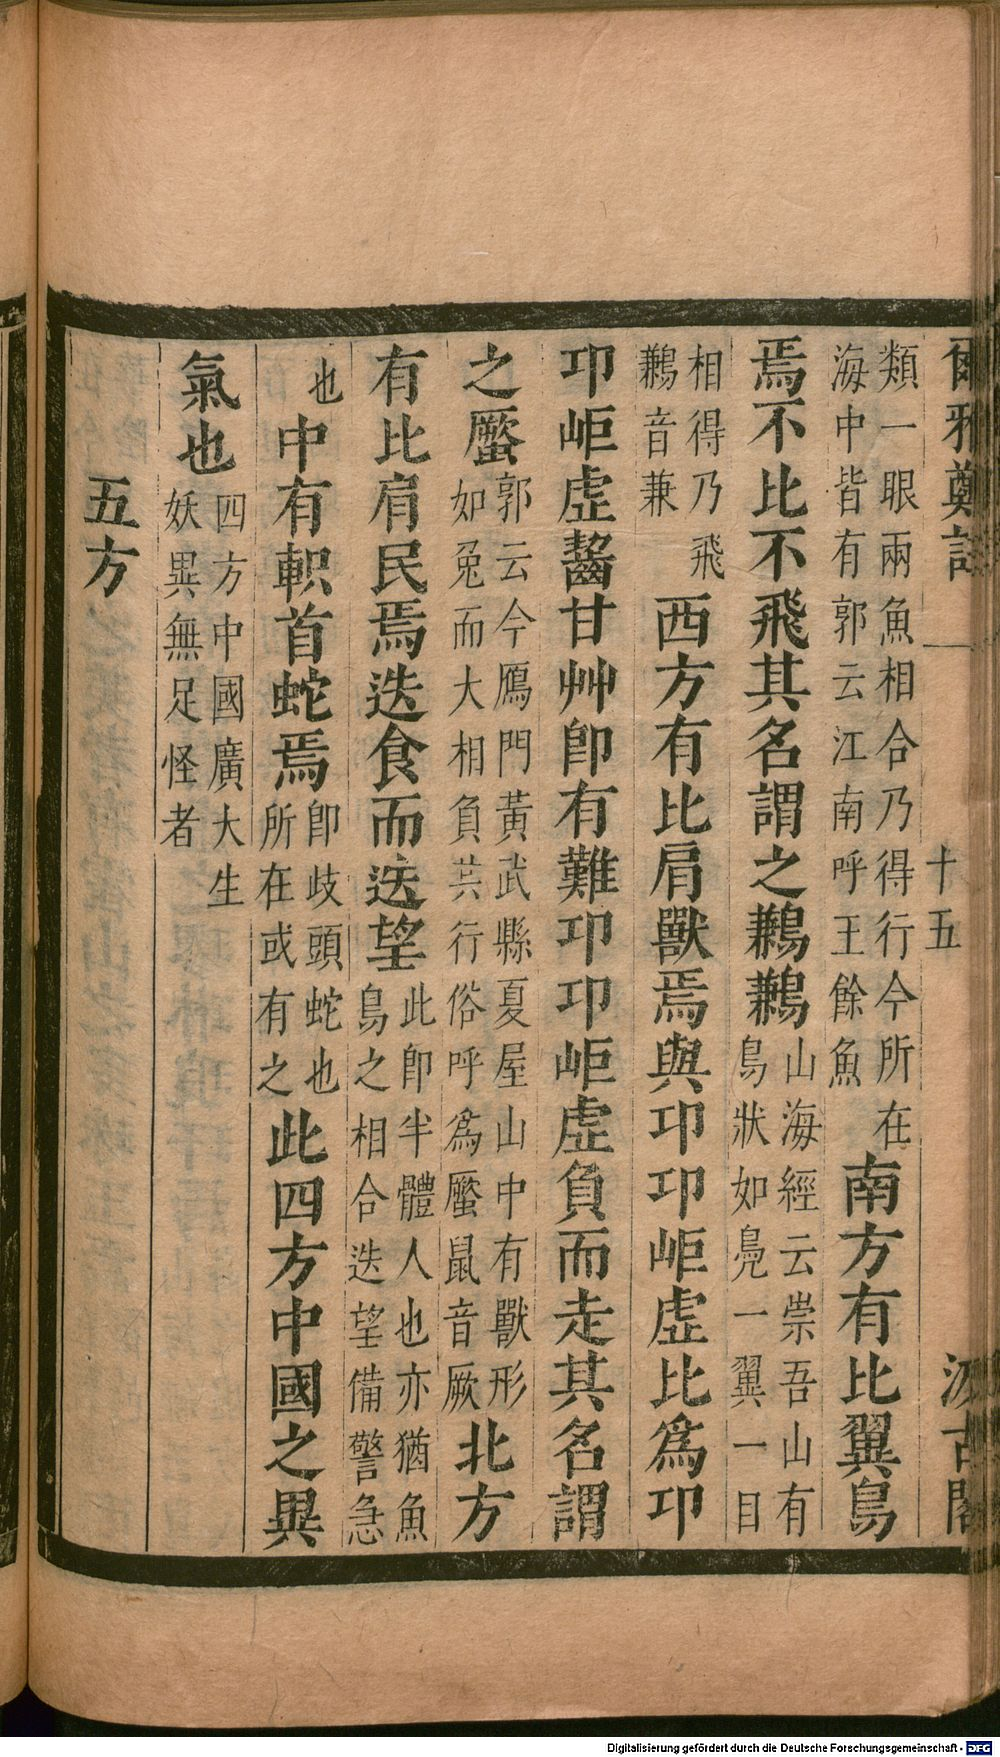 爾雅鄭註
十五
汲古閣
類一眼兩魚相合乃得行今所在
海中皆有郭云江南呼王餘魚
南方有比翼鳥
焉不比不飛其名謂之鶼鶼
山海經云崇吾山有
鳥狀如鳧一翼一目
相得乃飛
鶼音兼
西方有比肩獸焉與卭卭岠虛比爲卭
卭岠虛齧甘艸卽有難卭卭岠虛負而走其名謂
之蟨
郭云今鴈門黃武縣夏屋山中有獸形
如兔而大相負共行俗呼爲蟨鼠音厥
北方
有比肩民焉迭食而迭望
此卽半體人也亦猶魚
鳥之相合迭望備警急
也
中有軹首蛇焉
卽歧頭蛇也
所在或有之
此四方中國之異
氣也
四方中國廣大生
妖異無足怪者
五方
Digitalisierung gefördert durch die Deutsche Forschungsgemeinschaft - DFG